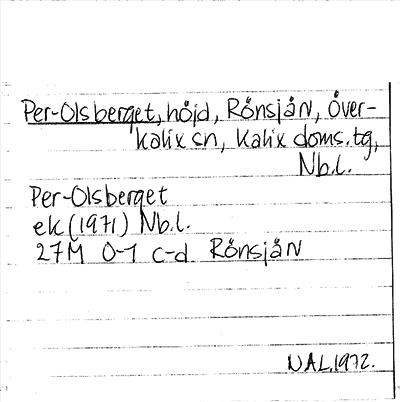 Per-Olsberget, höjd, Rönsjån, Över-
kalix sn, Kalix doms.tg,
Nb.l.
Per-Olsberget
ek (1971) Nb.l.
27M 0-1 c-d Rönsjån
NAL.1972.